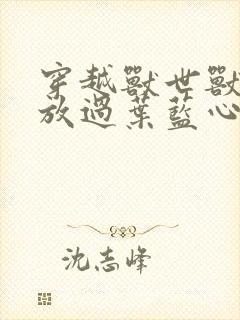 穿越獸世獸
放過葉藍心
沈志峰